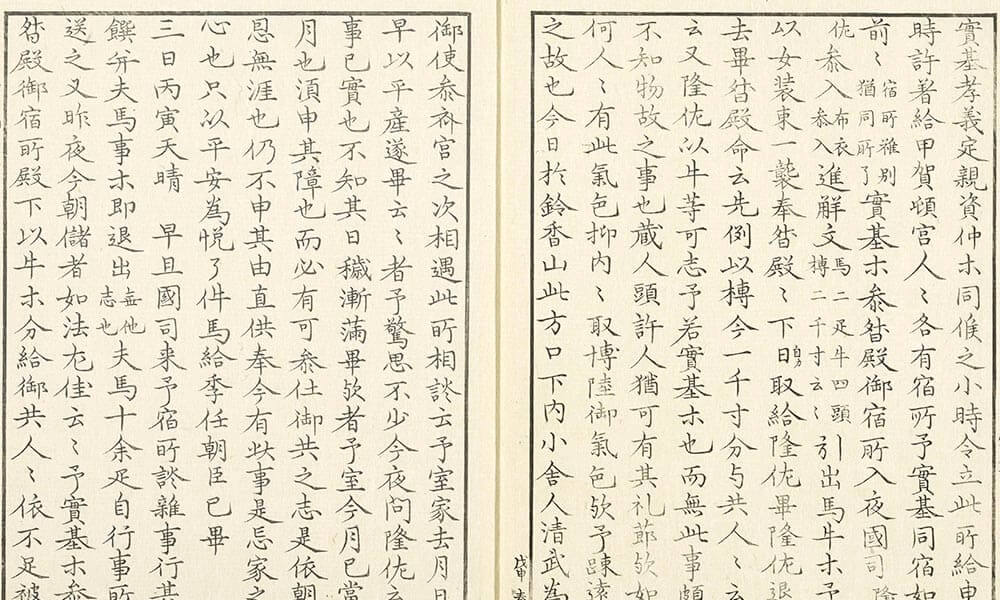 實基孝義定親資仲木同候之小時令立此所給申
時許着給甲賀頓宮人〻各有宿所予實基同宿如
前〻宿所雖別猶同所了實基木參督殿御宿所入夜國司隆
佐參入布衣參入進解文馬二疋牛四頭榑二千寸云〻引出馬牛木予
以女装束一襲奉督殿〻下自取給隆佐畢隆佐退
去畢督殿命云先例以榑今一千寸分与共人〻云
云又隆佐以牛等可志予若實基木也而無此事頗
不知物故之事也蔵人頭許人猶可有其礼莭欤如
何人〻有此氣色抑内〻取博陸御氣色欤予踈遠
之故也今日於鈴香山此方口下内小舎人清武為
御使叅斎宮之次相遇此所相談云予室家去月日
早以平産遂畢云〻者予驚思不少今夜問隆佐云
事已實也不知其日穢漸蒲畢欤者予室今月已當
月也湏申其障也而必有可叅仕御共之志是依朝
恩無涯也仍不申其由直供奉今有此事是忘家之
心也只以平安為悦了件馬給季任朝臣已畢
三日丙寅天晴 早旦國司来予宿所談雜事行其
饌弁夫馬事木即退出無他志也夫馬十余疋自行事所
送之又昨夜今朝儲者如法尤佳云〻予實基木參
督殿御宿所殿下以牛木分給御共人〻依不足被